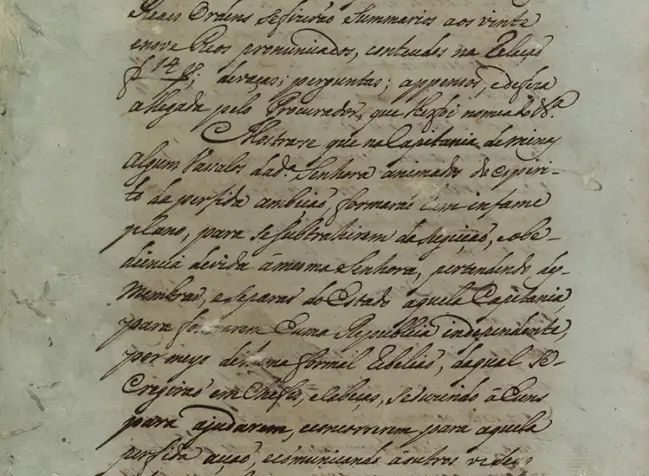 Reaes Ordens se fizerão Summarios aos vinte
enove Reos pronunciados, conteudos na Relação
f 14 f; devaças; perguntas; appensos, e defeza
allegada pelo Procurador, que lhe foi nomeado &ª
Mostrase que na Capitania de minas
alguns Vasalos da dª Senhora animados do espiri-
to de perfida ambição, formarão hum infame
plano, para se subtrahirem da sugeição, e obe-
diencia devida á mesma Senhora, pertendendo des-
membrar, e separar do Estado aquela Capitania,
para formarem huma Republica independente,
por meyo de huma formal rebelião, da qual se
eregirão em chefes, e cabeças, seduzindo á huns
para ajudarem, e concorrerem para aquela
perfida ação, e comunicando á outros